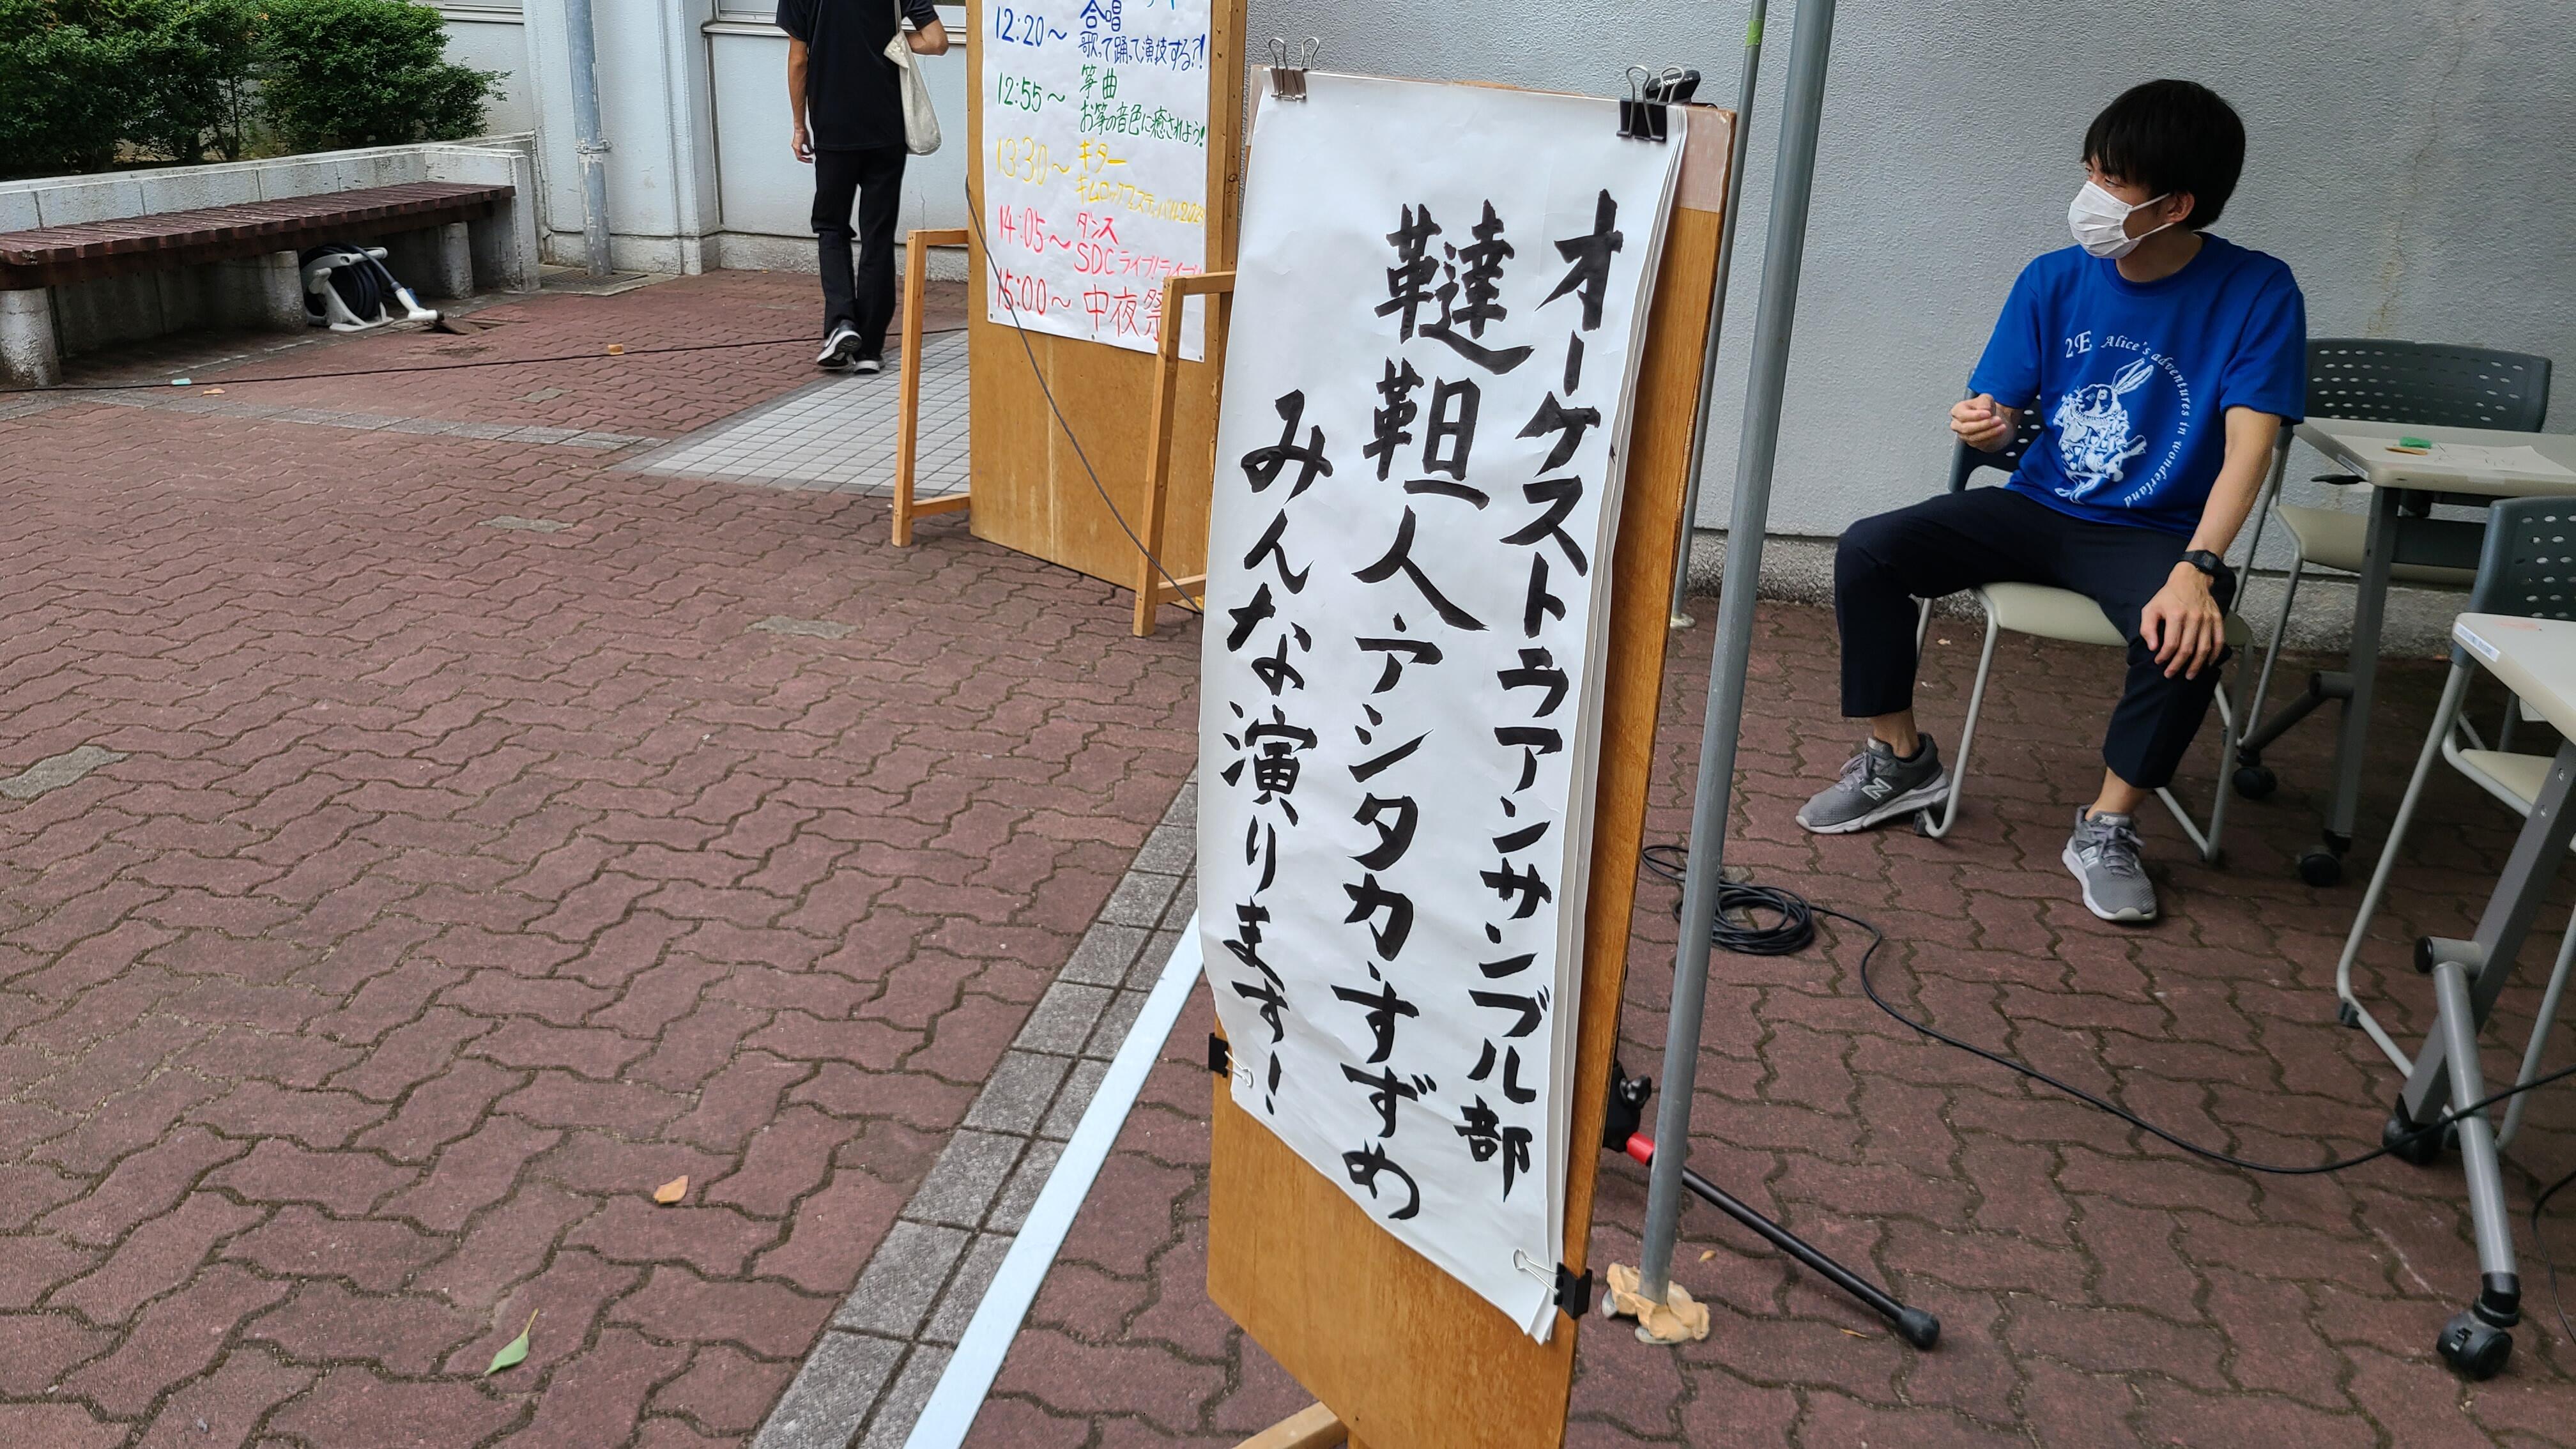 オーケストラアンサンブル部
韃靼人・アシタカ・すずめ
みんな演ります！
12:20～ 合唱
歌って踊って演技する?!
12:55～ 箏曲
お箏の音色に癒されよう!
13:30～ ギター
キムロックフェスティバル202
14:05～ ダンス
SDCライブ!ライブ!
15:00～ 中夜祭
2E Alice's adventures in wonderland
N
5